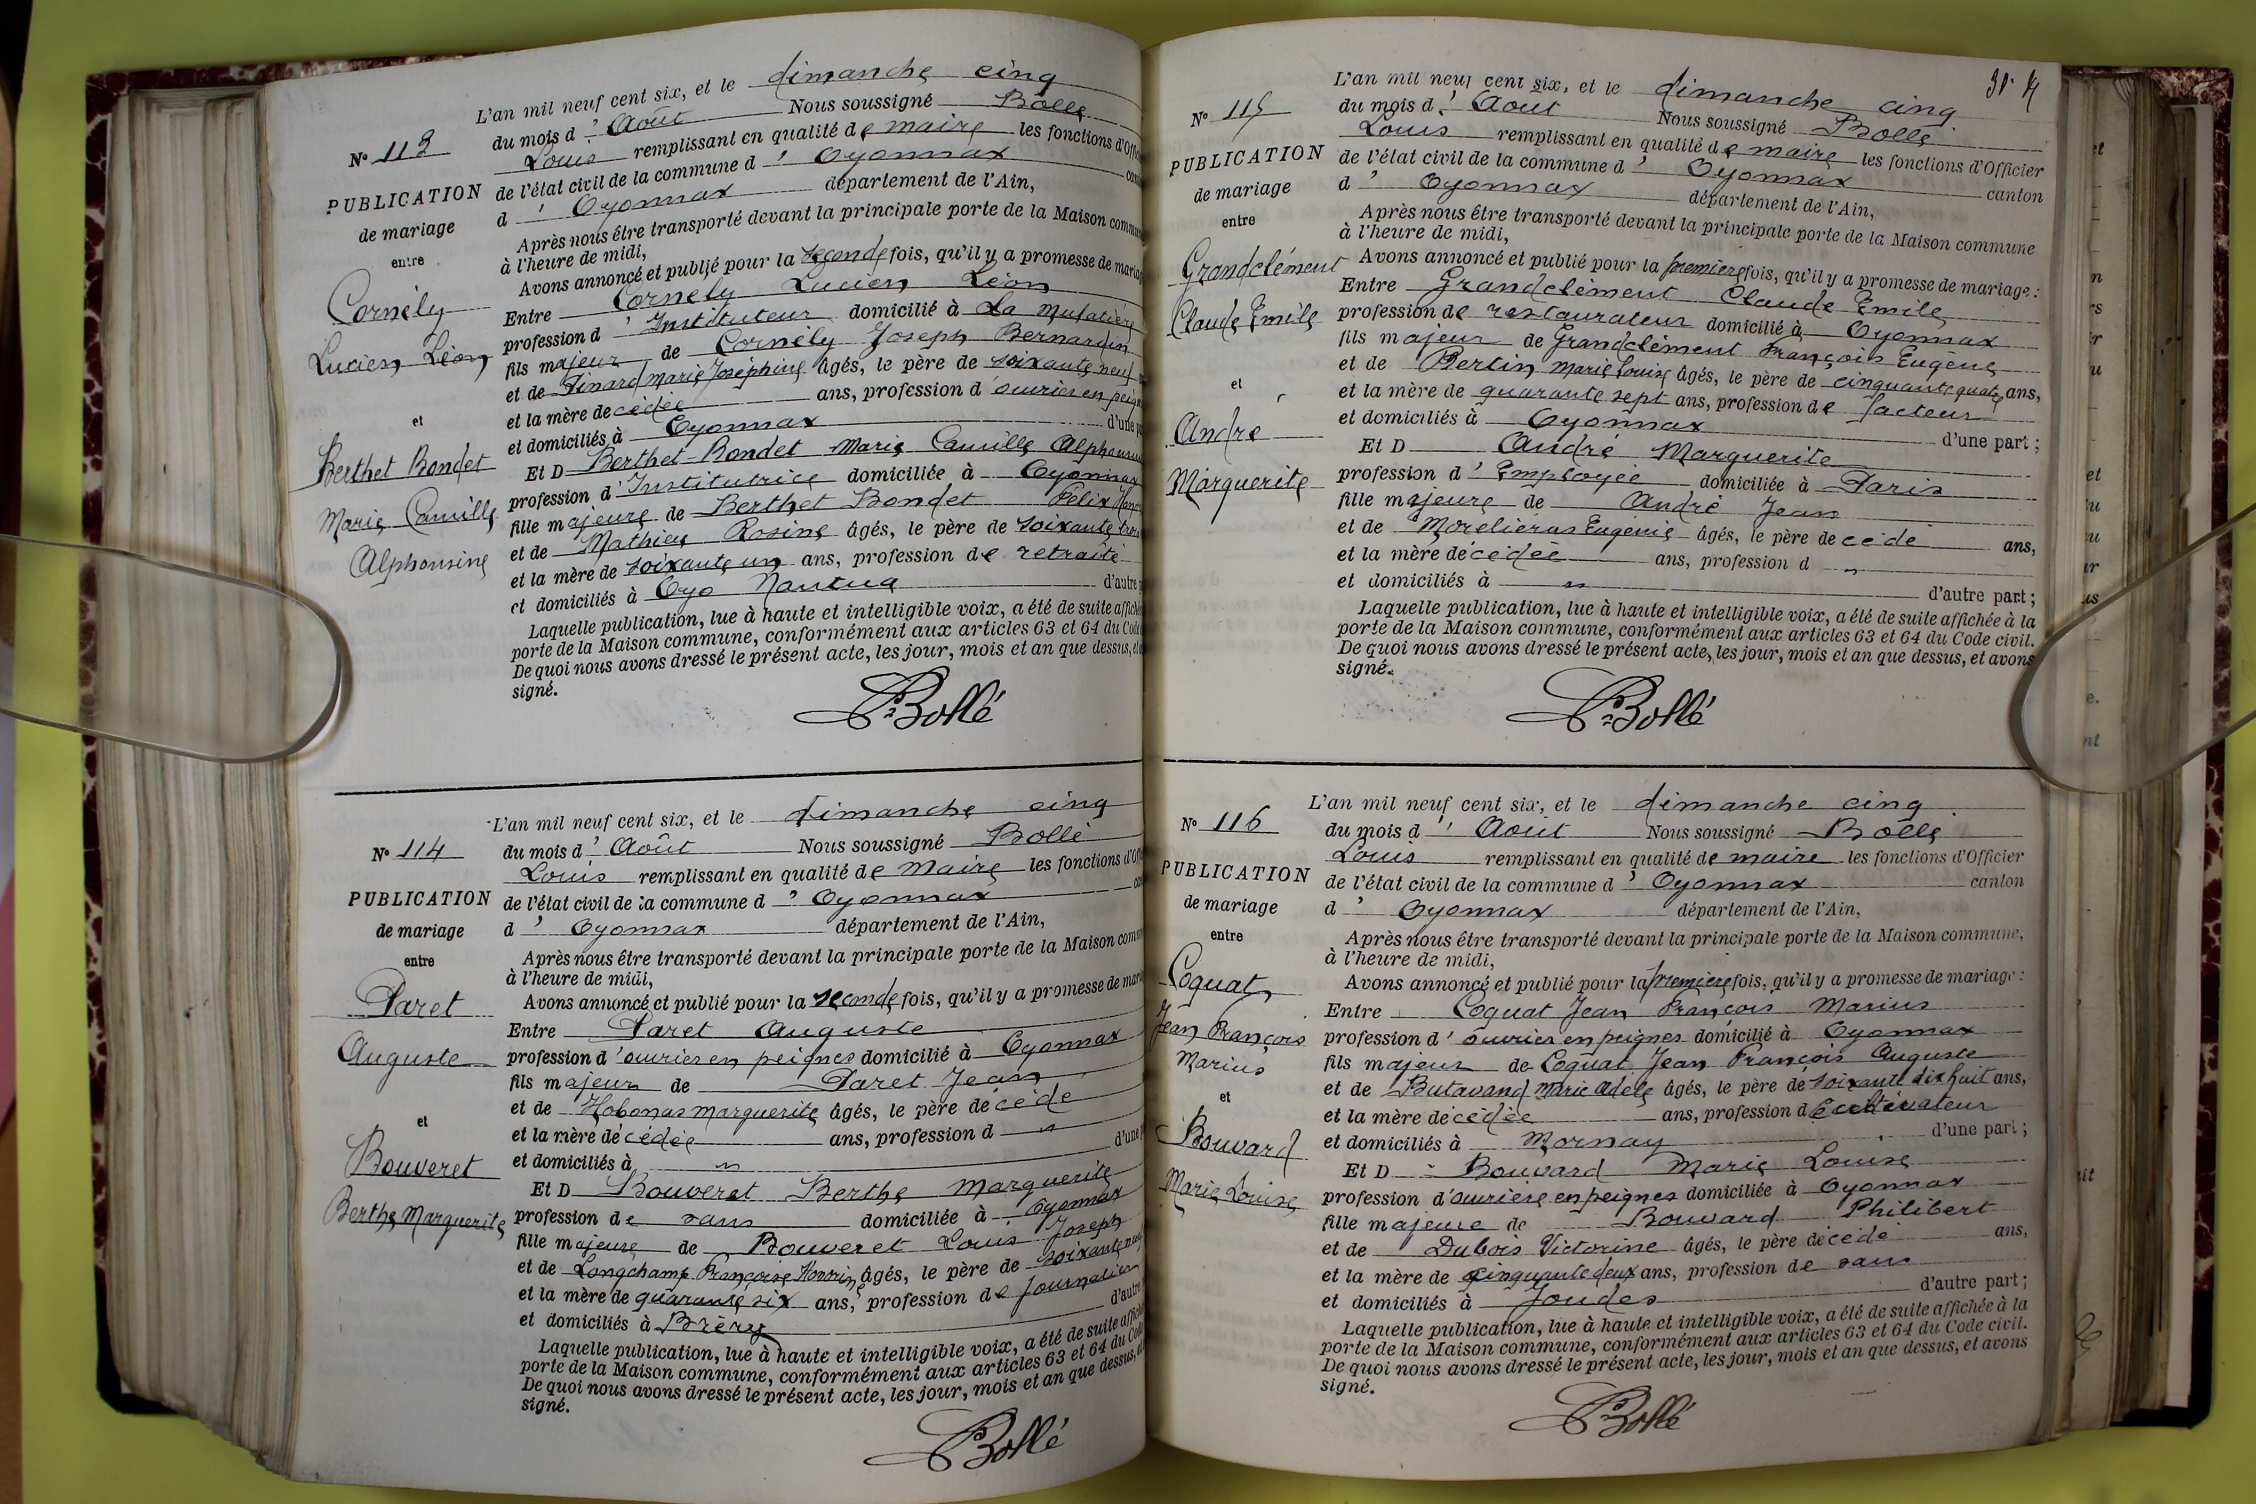 L'an mil neuf cent six, et le dimanche cinq
du mois d' Août Nous soussigné Bollé
Louis remplissant en qualité de maire les fonctions d'Offi
de l'état civil de la commune d' Oyonnax
d' Oyonnax département de l'Ain,
Après nous être transporté devant la principale porte de la Maison commu
à l'heure de midi,
Avons annoncé et publié pour la seconde fois, qu'il y a promesse de maria
Entre Cornély Lucien Léon
profession d'Instituteur domicilié à La Mulatière
fils majeur de Cornély Joseph Bernardin
et de Pinard Marie Joséphine âgés, le père de soixante neuf
et la mère décédée ans, profession d ouvrier en peign
et domiciliés à Oyonnax d'une pa
Et D Berthet-Bondet Marie Camille Alphonsine
profession d'Institutrice domiciliée à Oyonnax
fille majeure de Berthet Bondet Félix
et de Mathieu Rosine âgés, le père de soixante trois
et la mère de soixante un ans, profession de retraité
et domiciliés à Oyo Nantua d'autre
Laquelle publication, lue à haute et intelligible voix, a été de suite affiché
porte de la Maison commune, conformément aux articles 63 et 64 du Code
De quoi nous avons dressé le présent acte, les jour, mois et an que dessus, et
signé.
Bollé
N° 113
PUBLICATION
de mariage
entre
Cornély
Lucien Léon
et
Berthet Bondet
Marie Camille
Alphonsine
L'an mil neuf cent six, et le dimanche cinq
du mois d' Août Nous soussigné Bollé
Louis remplissant en qualité de Maire les fonctions d'Offi
de l'état civil de la commune d' Oyonnax
d' Oyonnax département de l'Ain,
Après nous être transporté devant la principale porte de la Maison comm
à l'heure de midi,
Avons annoncé et publié pour la seconde fois, qu'il y a promesse de mari
Entre Paret Auguste
profession d'ouvrier en peignes domicilié à Oyonnax
fils majeur de Paret Jean
et de Hobonas Marguerite âgés, le père décédé
et la mère décédée ans, profession d "
et domiciliés à " d'une
Et D Bouveret Berthe Marguerite
profession de sans domiciliée à Oyonnax
fille majeure de Bouveret Louis Joseph
et de Longchamp Françoise Honorine âgés, le père de soixante
et la mère de quarante six ans, profession de journalier
et domiciliés à Brèry d'autre
Laquelle publication, lue à haute et intelligible voix, a été de suite affich
porte de la Maison commune, conformément aux articles 63 et 64 du Co
De quoi nous avons dressé le présent acte, les jour, mois et an que dessus,
signé.
Bollé
N° 114
PUBLICATION
de mariage
entre
Paret
Auguste
et
Bouveret
Berthe Marguerite
L'an mil neuf cent six, et le dimanche cinq
du mois d' Août Nous soussigné Bollé
Louis remplissant en qualité de maire les fonctions d'Officier
de l'état civil de la commune d' Oyonnax
d' Oyonnax département de l'Ain, canton
Après nous être transporté devant la principale porte de la Maison commune
à l'heure de midi,
Avons annoncé et publié pour la première fois, qu'il y a promesse de mariage :
Entre Grandclément Claude Emile
profession de restaurateur domicilié à Oyonnax
fils majeur de Grandclément François Eugène
et de Bertin Marie Louise âgés, le père de cinquante quatre ans,
et la mère de quarante sept ans, profession de facteur
et domiciliés à Oyonnax d'une part ;
Et D André Marguerite
profession d' Employée domiciliée à Paris
fille majeure de André Jean
et de Morelieras Eugénie âgés, le père décédé ans,
et la mère décédée ans, profession d "
et domiciliés à " d'autre part ;
Laquelle publication, lue à haute et intelligible voix, a été de suite affichée à la
porte de la Maison commune, conformément aux articles 63 et 64 du Code civil.
De quoi nous avons dressé le présent acte, les jour, mois et an que dessus, et avons
signé.
Bollé
N° 115
PUBLICATION
de mariage
entre
Grandclément
Claude Emile
et
André
Marguerite
L'an mil neuf cent six, et le dimanche cinq
du mois d' Août Nous soussigné Bollé
Louis remplissant en qualité de maire les fonctions d'Officier
de l'état civil de la commune d' Oyonnax canton
d' Oyonnax département de l'Ain,
Après nous être transporté devant la principale porte de la Maison commune,
à l'heure de midi,
Avons annoncé et publié pour la première fois, qu'il y a promesse de mariage :
Entre Coquat Jean François Marius
profession d' ouvrier en peignes domicilié à Oyonnax
fils majeur de Coquat Jean François Auguste
et de Butavand Marie Adèle âgés, le père de soixante dix huit ans,
et la mère décédée ans, profession de cultivateur
et domiciliés à Mornay d'une part ;
Et D Bouvard Marie Louise
profession d'ouvrière en peignes domiciliée à Oyonnax
fille majeure de Bouvard Philibert
et de Dubois Victorine âgés, le père décédé ans,
et la mère de cinquante deux ans, profession de sans
et domiciliés à Joudes d'autre part ;
Laquelle publication, lue à haute et intelligible voix, a été de suite affichée à la
porte de la Maison commune, conformément aux articles 63 et 64 du Code civil.
De quoi nous avons dressé le présent acte, les jour, mois et an que dessus, et avons
signé.
Bollé
N° 116
PUBLICATION
de mariage
entre
Coquat
Jean François
Marius
et
Bouvard
Marie Louise